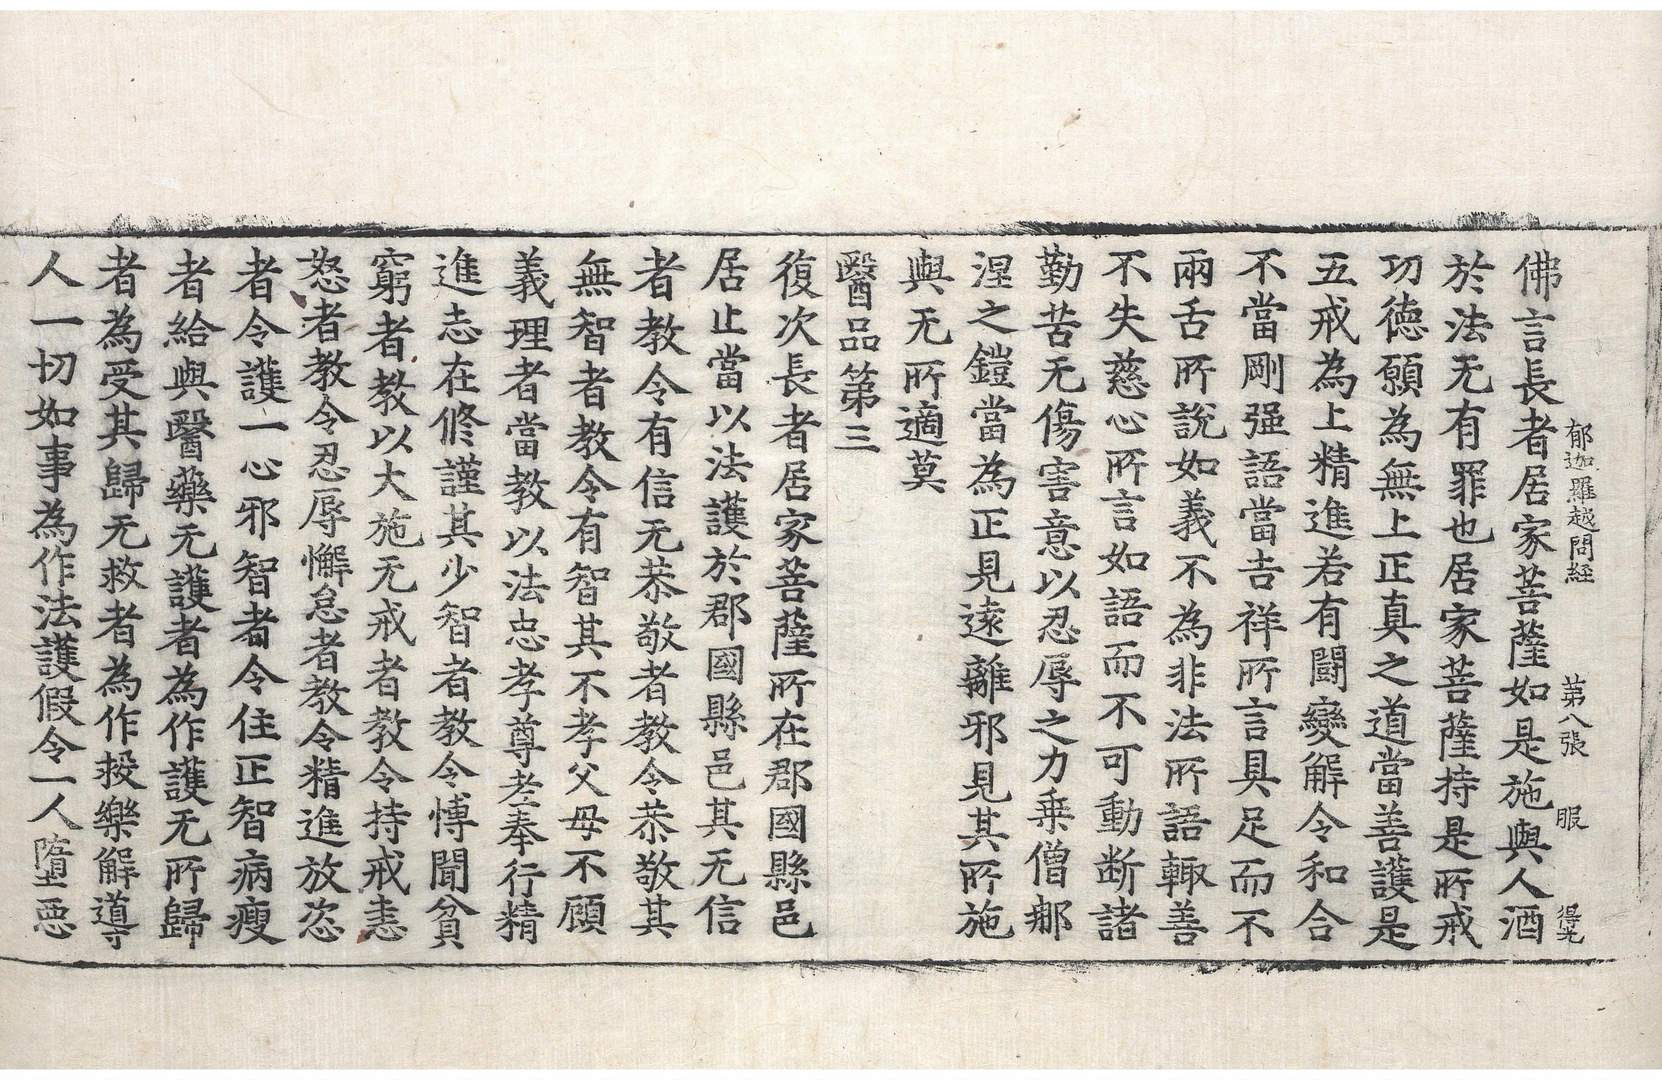 郁迦羅越問経　第八張　服　得光
佛言長者居家菩薩如是施與人酒
於法无有罪也居家菩薩持是所戒
功德願為無上正真之道當善護是
五戒為上精進若有鬪變解令和合
不當剛强語當吉祥所言具足而不
兩舌所說如義不為非法所語輙善
不失慈心所言如語而不可動断諸
勤苦无傷害意以忍辱之力乗僧那
涅之鎧當為正見遠離邪見其所施
與无所適莫
醫品第三
復次長者居家菩薩所在郡國縣邑
居止當以法護於郡國縣邑其无信
者教令有信无恭敬者教令恭敬其
無智者教令有智其不孝父母不顧
義理者當教以法忠孝尊老奉行精
進志在修謹其少智者教令慱聞貧
窮者教以大施无戒者教令持戒恚
怒者教令忍辱懈怠者教令精進放恣
者令護一心邪智者令住正智病瘦
者給與醫藥无護者為作護无所歸
者為受其歸无救者為作救樂解導
人一切如事為作法護假令一人墮惡